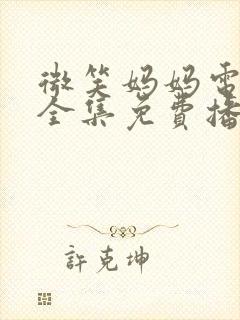 微笑妈妈电
全集免費播
許克坤